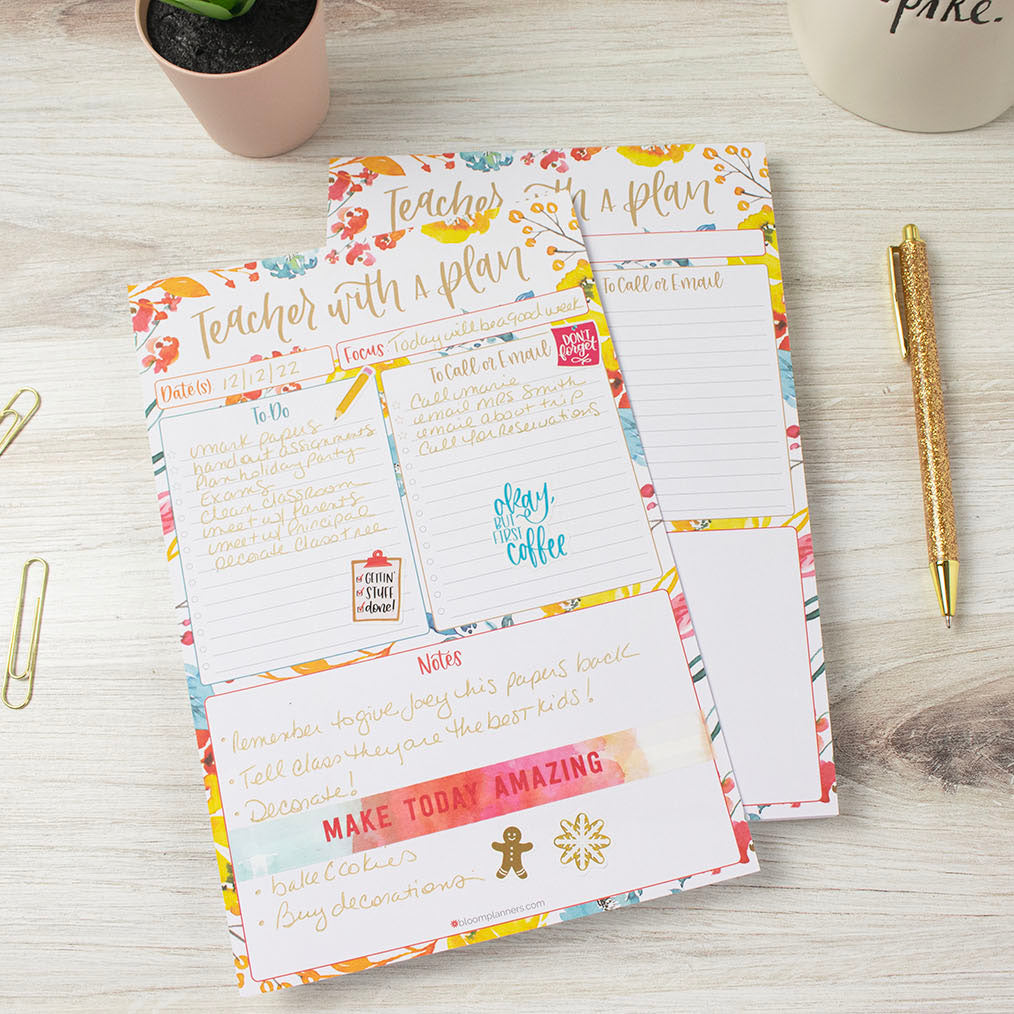 pike.
Teacher with a plan
To Call or Email
Teacher with a plan
Date(s) 12/12/22
Focus: Today will be a good week
To-Do
mark papers
handout assignments
Plan holiday party
Exams
clean classroom
meet w/ Parents
meet w/ Principal
decorate Class tree
GETTIN'
STUFF
done!
To Call or Email
DON'T
forget
Call Marie
email MRS Smith
email about trip
Call for Reservations
okay,
BUT
FIRST
coffee
Notes
• Remember to give Joey his papers back
• Tell class they are the best kids!
• Decorate!
MAKE TODAY AMAZING
• bake Cookies
• Buy decorations
bloomplanners.com